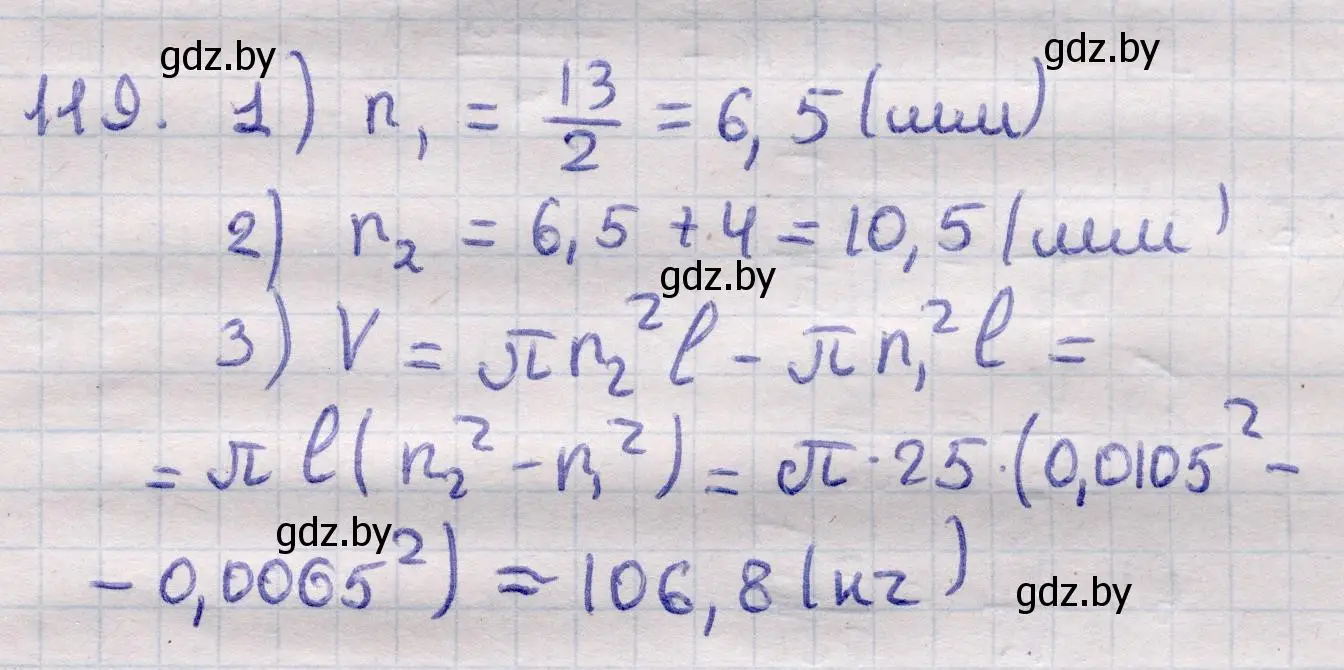 gdz.by
gdz.by
119. 1) r₁ = 13/2 = 6,5 (мм)
2) r₂ = 6,5 + 4 = 10,5 (мм)
gdz.by
3) V = πr₂²l - πr₁²l =
= πl(r₂² - r₁²) = π·25·(0,0105² -
gdz.by
- 0,0065²) ≈ 106,8 (кг)
gdz.by